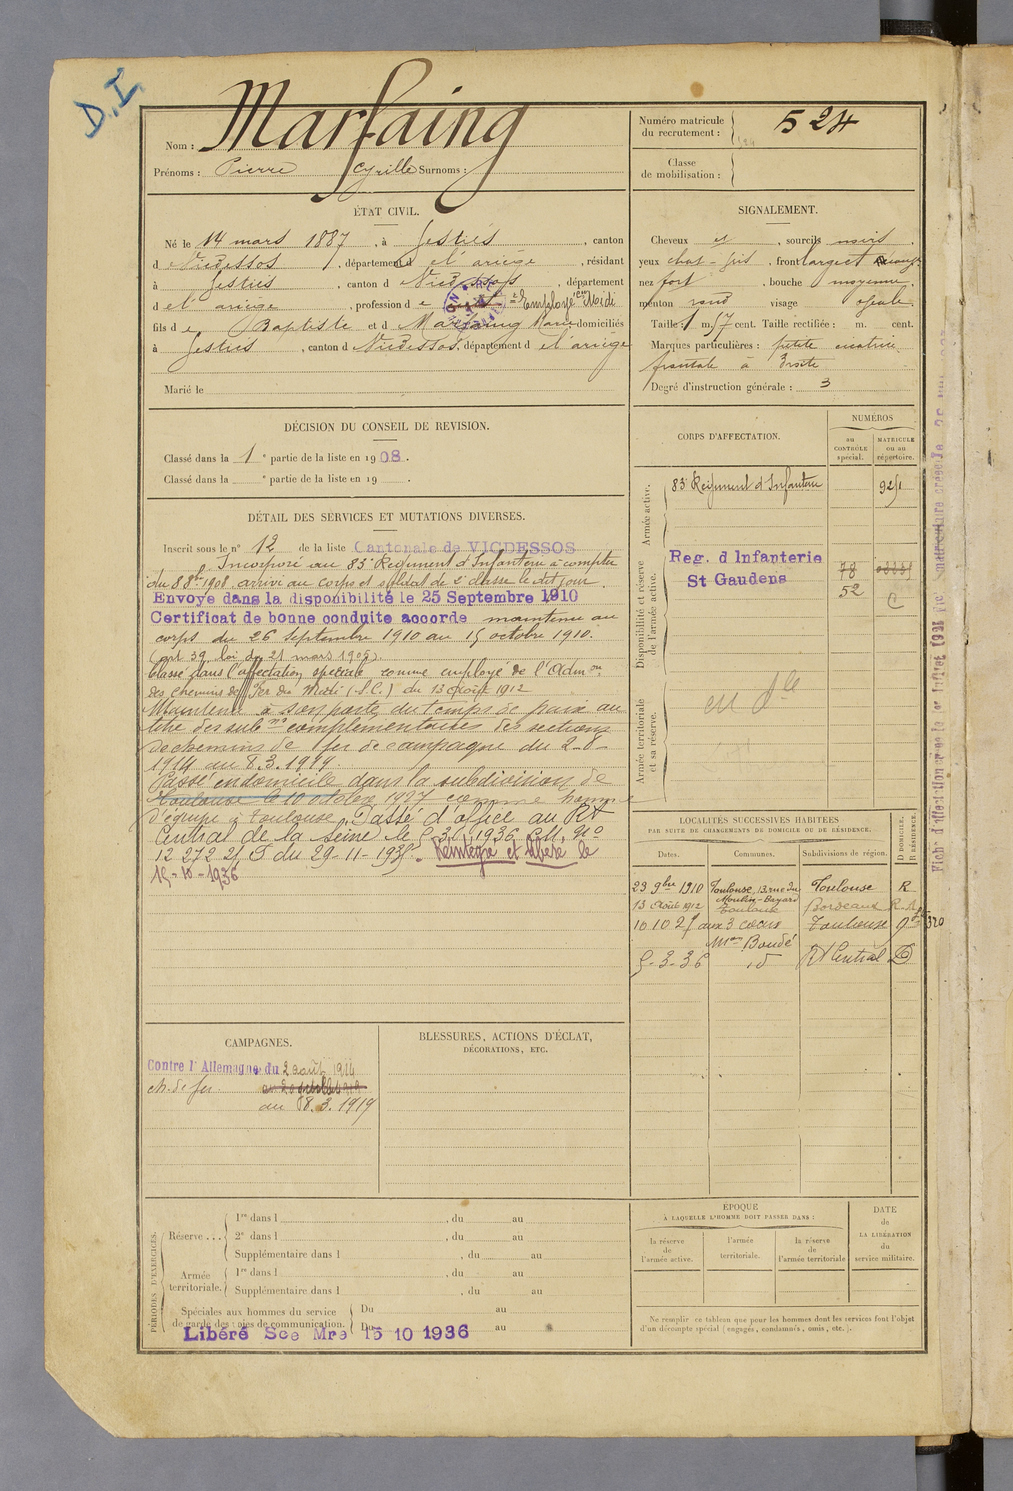 D.I.
Nom : Marfaing
Prénoms : Pierre Cyrille Surnoms :
Numéro matricule du recrutement : 524
Classe de mobilisation :
ÉTAT CIVIL.
Né le 14 mars 1887, à Gestiès, canton
d Vicdessos, département de l'ariège, résidant
à Gestiès, canton d Vicdessos, département
d e l'ariège, profession d e Employé cie Midi
fils d e Baptiste et d Marfaing Marie domiciliés
à Gestiès, canton d Vicdessos, département d e l'ariège
Marié le
SIGNALEMENT.
Cheveux et, sourcils noirs.
yeux chat-gris, front large et
nez fort, bouche moyenne,
menton rond visage ovale.
Taille : 1 m. 57 cent. Taille rectifiée : m. cent.
Marques particulières : petite cicatrice
frontale à droite
Degré d'instruction générale : 3
DÉCISION DU CONSEIL DE REVISION.
Classé dans la 1e partie de la liste en 1908.
Classé dans la e partie de la liste en 19 .
CORPS D'AFFECTATION.
NUMÉROS
au CONTRÔLE spécial.
MATRICULE ou au répertoire.
Armée active.
83e Régiment d'Infanterie
Disponibilité et réserve de l'armée active.
Reg. d Infanterie
St Gaudens
78
52
C
Armée territoriale et sa réserve.
en dle
DÉTAIL DES SERVICES ET MUTATIONS DIVERSES.
Inscrit sous le n° 12 de la liste Cantonale de VICDESSOS
Incorporé au 83e Régiment d'Infanterie à compter
du 8 8bre 1908, arrivé au corps et soldat de 2e classe le dit jour.
Envoyé dans la disponibilité le 25 Septembre 1910
Certificat de bonne conduite accordé maintenu au
corps du 26 septembre 1910 au 15 octobre 1910.
(art 39 loi du 21 mars 1905).
Classé dans l'affectation spéciale comme employé de l'Admon
des Chemins de Fer du Midi (S.C.) du 13 Août 1912
Maintenu à son poste du temps de paix au
titre des subons complémentaires des sections
de chemins de fer de campagne du 2-8-
1914 au 8.3.1919.
Passé en domicile dans la subdivision de
Toulouse le 10 octobre 1927 comme homme
d'équipe à Toulouse. Passé d'office au RT
Central de la Seine le 5-3-1936 CM. no
12272 2/S du 29-11-1935. Réintégré et libéré le
15-10-1936
LOCALITÉS SUCCESSIVES HABITÉES
PAR SUITE DE CHANGEMENTS DE DOMICILE OU DE RÉSIDENCE.
Dates. Communes. Subdivisions de région. D DOMICILE. R RÉSIDENCE.
23 9bre 1910 Toulouse, 13, rue du Moulin-Bayard Toulouse R
13 Août 1912 Toulouse Bordeaux R.
10 10 27 aux 3 cocus Toulouse
Mon Boudé
5-3-36 id RT Central D
CAMPAGNES.
Contre l'Allemagne du 2 août 1914
ch. de fer
au 8.3.1919
BLESSURES, ACTIONS D'ÉCLAT,
DÉCORATIONS, ETC.
PÉRIODES D'EXERCICES.
Réserve...
1re dans l , du au
2e dans l , du au
Supplémentaire dans l , du au
Armée territoriale.
1re dans l , du au
Supplémentaire dans l , du au
Spéciales aux hommes du service de garde des voies de communication.
Du au
Du au
Libéré Sce Mre 15 10 1936
ÉPOQUE
À LAQUELLE L'HOMME DOIT PASSER DANS :
la réserve de l'armée active.
l'armée territoriale.
la réserve de l'armée territoriale
DATE de LA LIBÉRATION du service militaire.
Ne remplir ce tableau que pour les hommes dont les services font l'objet
d'un décompte spécial (engagés, condamnés, omis, etc.).